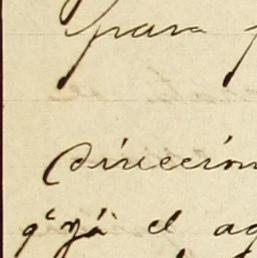 para
dirección
q.e ya el